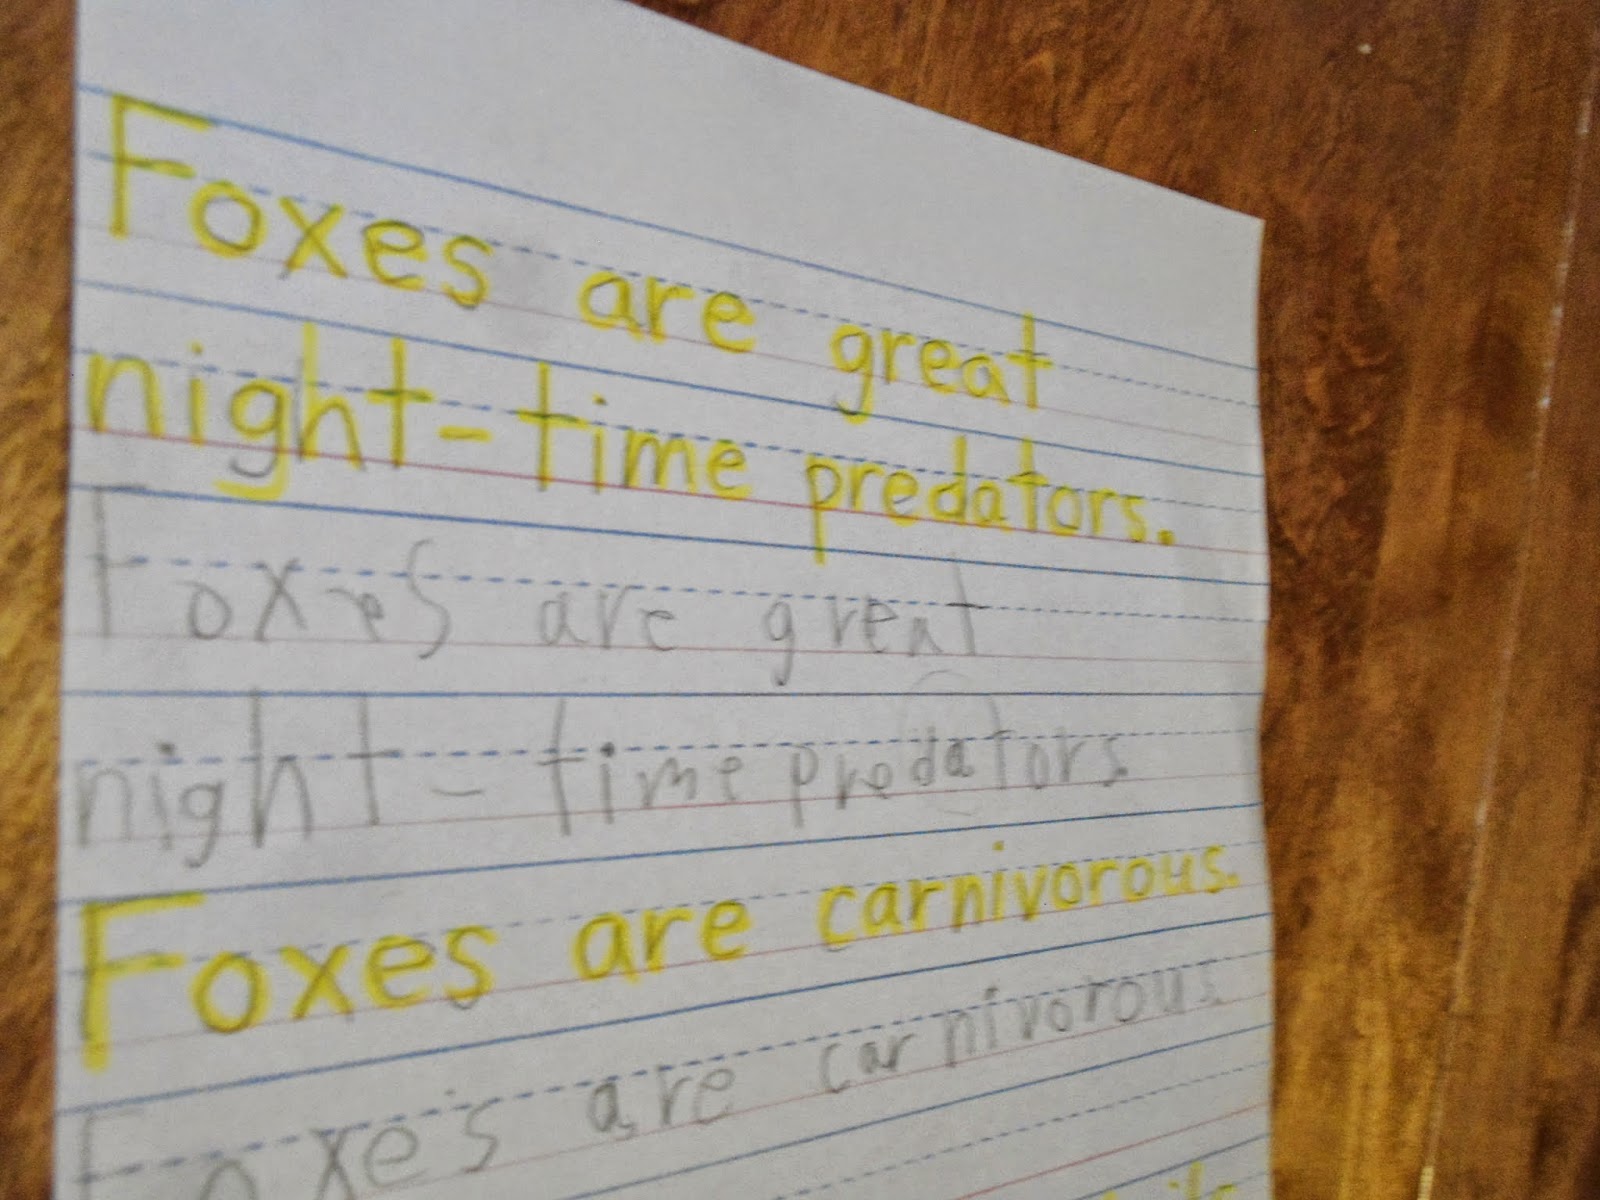 Foxes are great
night-time predators.
Foxes are great
night-time predators.
Foxes are carnivorous.
Foxes are carnivorous.